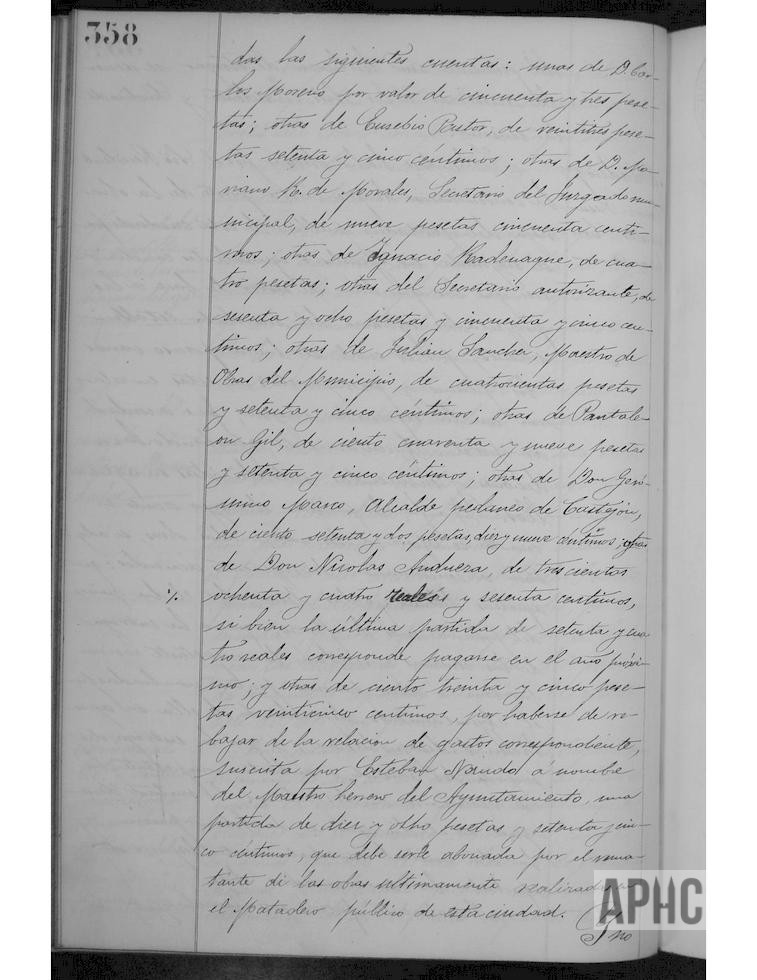 358
das las siguientes cuentas: unas de D. Car-
los Moreno por valor de cincuenta y tres pese-
tas; otras de Eusebio Pastor, de veintitres pese-
tas setenta y cinco céntimos; otras de D. Ma-
riano R. de Morales, Secretario del Juzgado mu-
nicipal, de nueve pesetas cincuenta centi-
mos; otras de Ignacio de cua-
tro pesetas; otras del Secretario autorizante, de
sesenta y ocho pesetas y cincuenta y cinco cen-
timos; otras de Julian Sanchez, Maestro de
Obras del Municipio, de cuatrocientas pesetas
y setenta y cinco céntimos; otras de Pantale-
on Gil, de ciento cuarenta y nueve pesetas
y setenta y cinco céntimos; otras de Don Geró-
nimo Marco, Alcalde pedaneo de Castejón,
de ciento setenta y dos pesetas, diez y nueve céntimos; otras
de Don Nicolas Anduera, de trescientos
ochenta y cuatro reales y sesenta centimos,
si bien la última partida de setenta y cua
tro reales corresponde pagarse en el año próxi-
mo; y otras de ciento treinta y cinco pese-
tas veinticinco centimos, por haberse de re-
bajar de la relacion de gastos correspondiente,
suscrita por Esteban á nombre
del Maestro herrero del Ayuntamiento, una
partida de diez y ocho pesetas y setenta y cin-
co céntimos, que debe serle abonada por el rema-
tante de las obras ultimamente realizadas en
el Matadero público de esta ciudad.
APHC